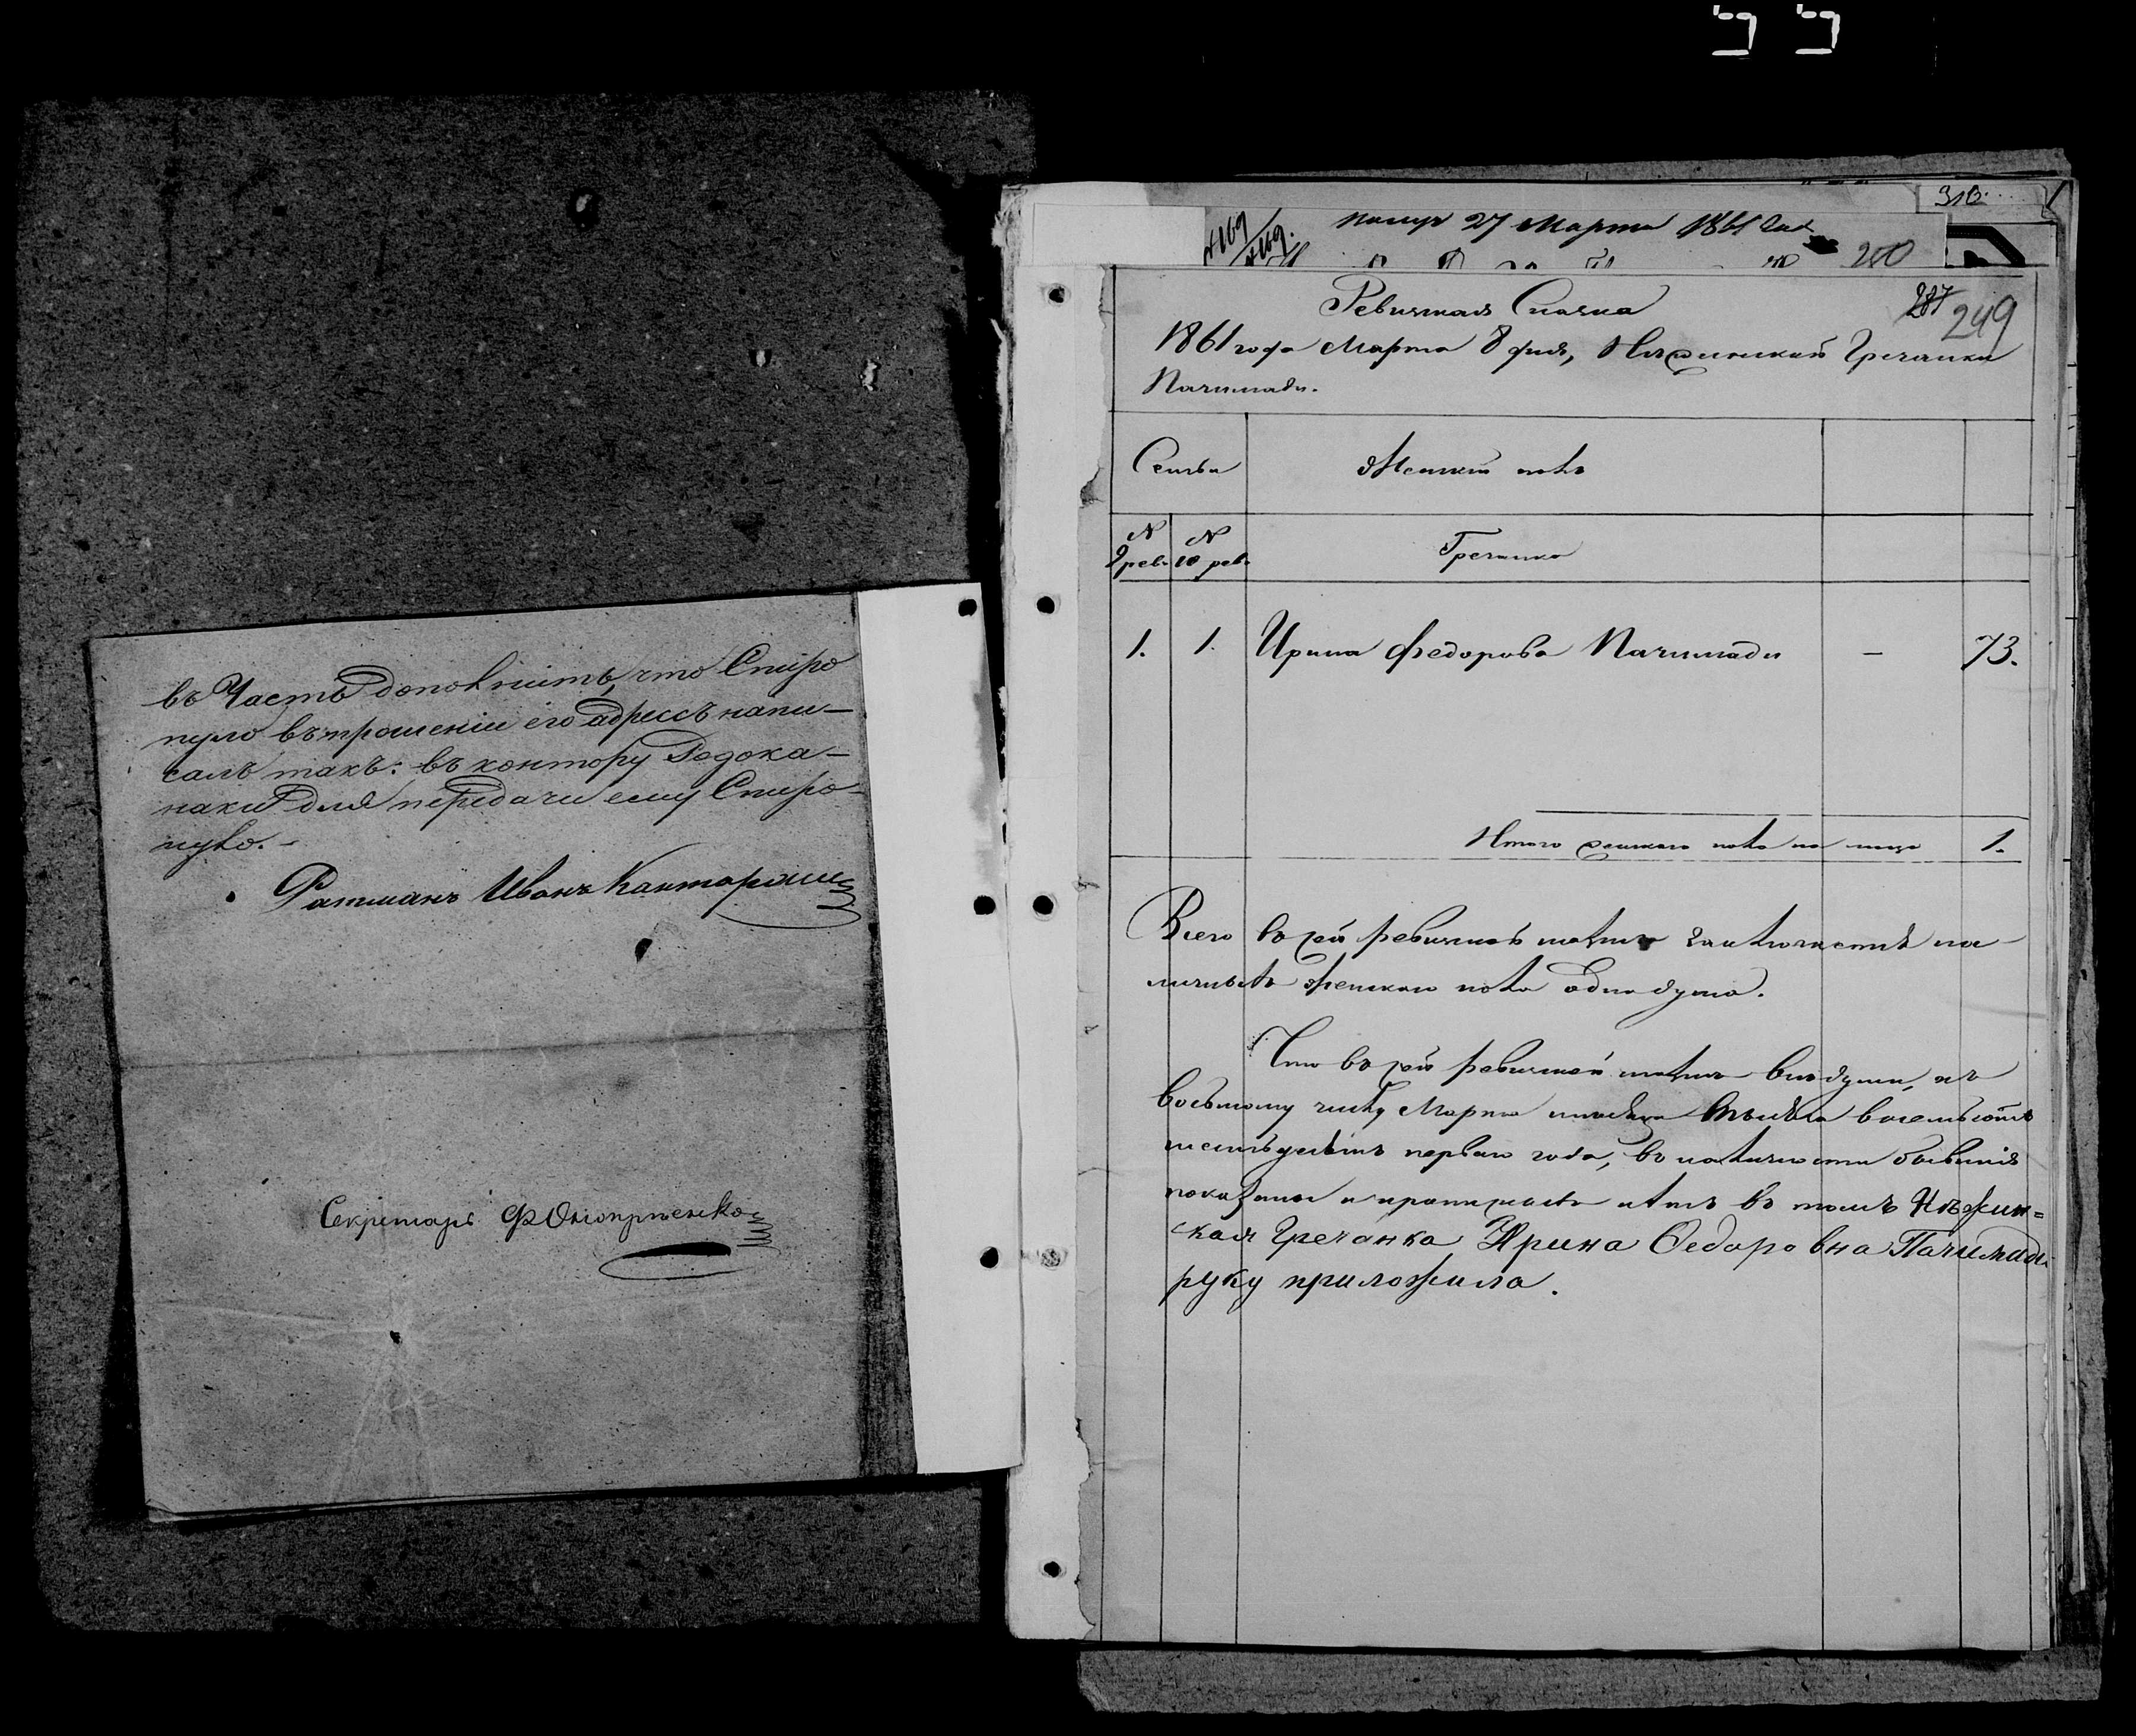 въ Часть дополнить, что Спиро
пуло въ прошеніи его адрессъ напи-
салъ такъ: въ контору Родока-
наки для передачи ему Спиро-
пуло.-
Ратманъ Иванъ
Секретарь
310
№169
№169.
получ 27 Марта 1861 года
250
Ревизская Сказка
287
249
1861 года Марта 8 дня, Нѣжинской Гречанки
Пачимади.
Семьи
Женскій полъ
№ 9 рев.
№ 10 рев.
Гречанка
1. 1. Ирина Федорова Пачимади — 73.
Итого женскаго пола на лицо 1.
Всего въ сей ревизской сказкѣ заключается на-
личныхъ женскаго пола одна душа.
Что въ сей ревизской сказкѣ всѣ души, къ
восьмому числу Марта тысяча восемьсотъ
шестьдесятъ перваго года, въ наличности бывшія
показаны и прописныхъ нѣтъ въ томъ Нѣжин=
ская Гречанка Ирина Федоровна Пачимади
руку приложила.